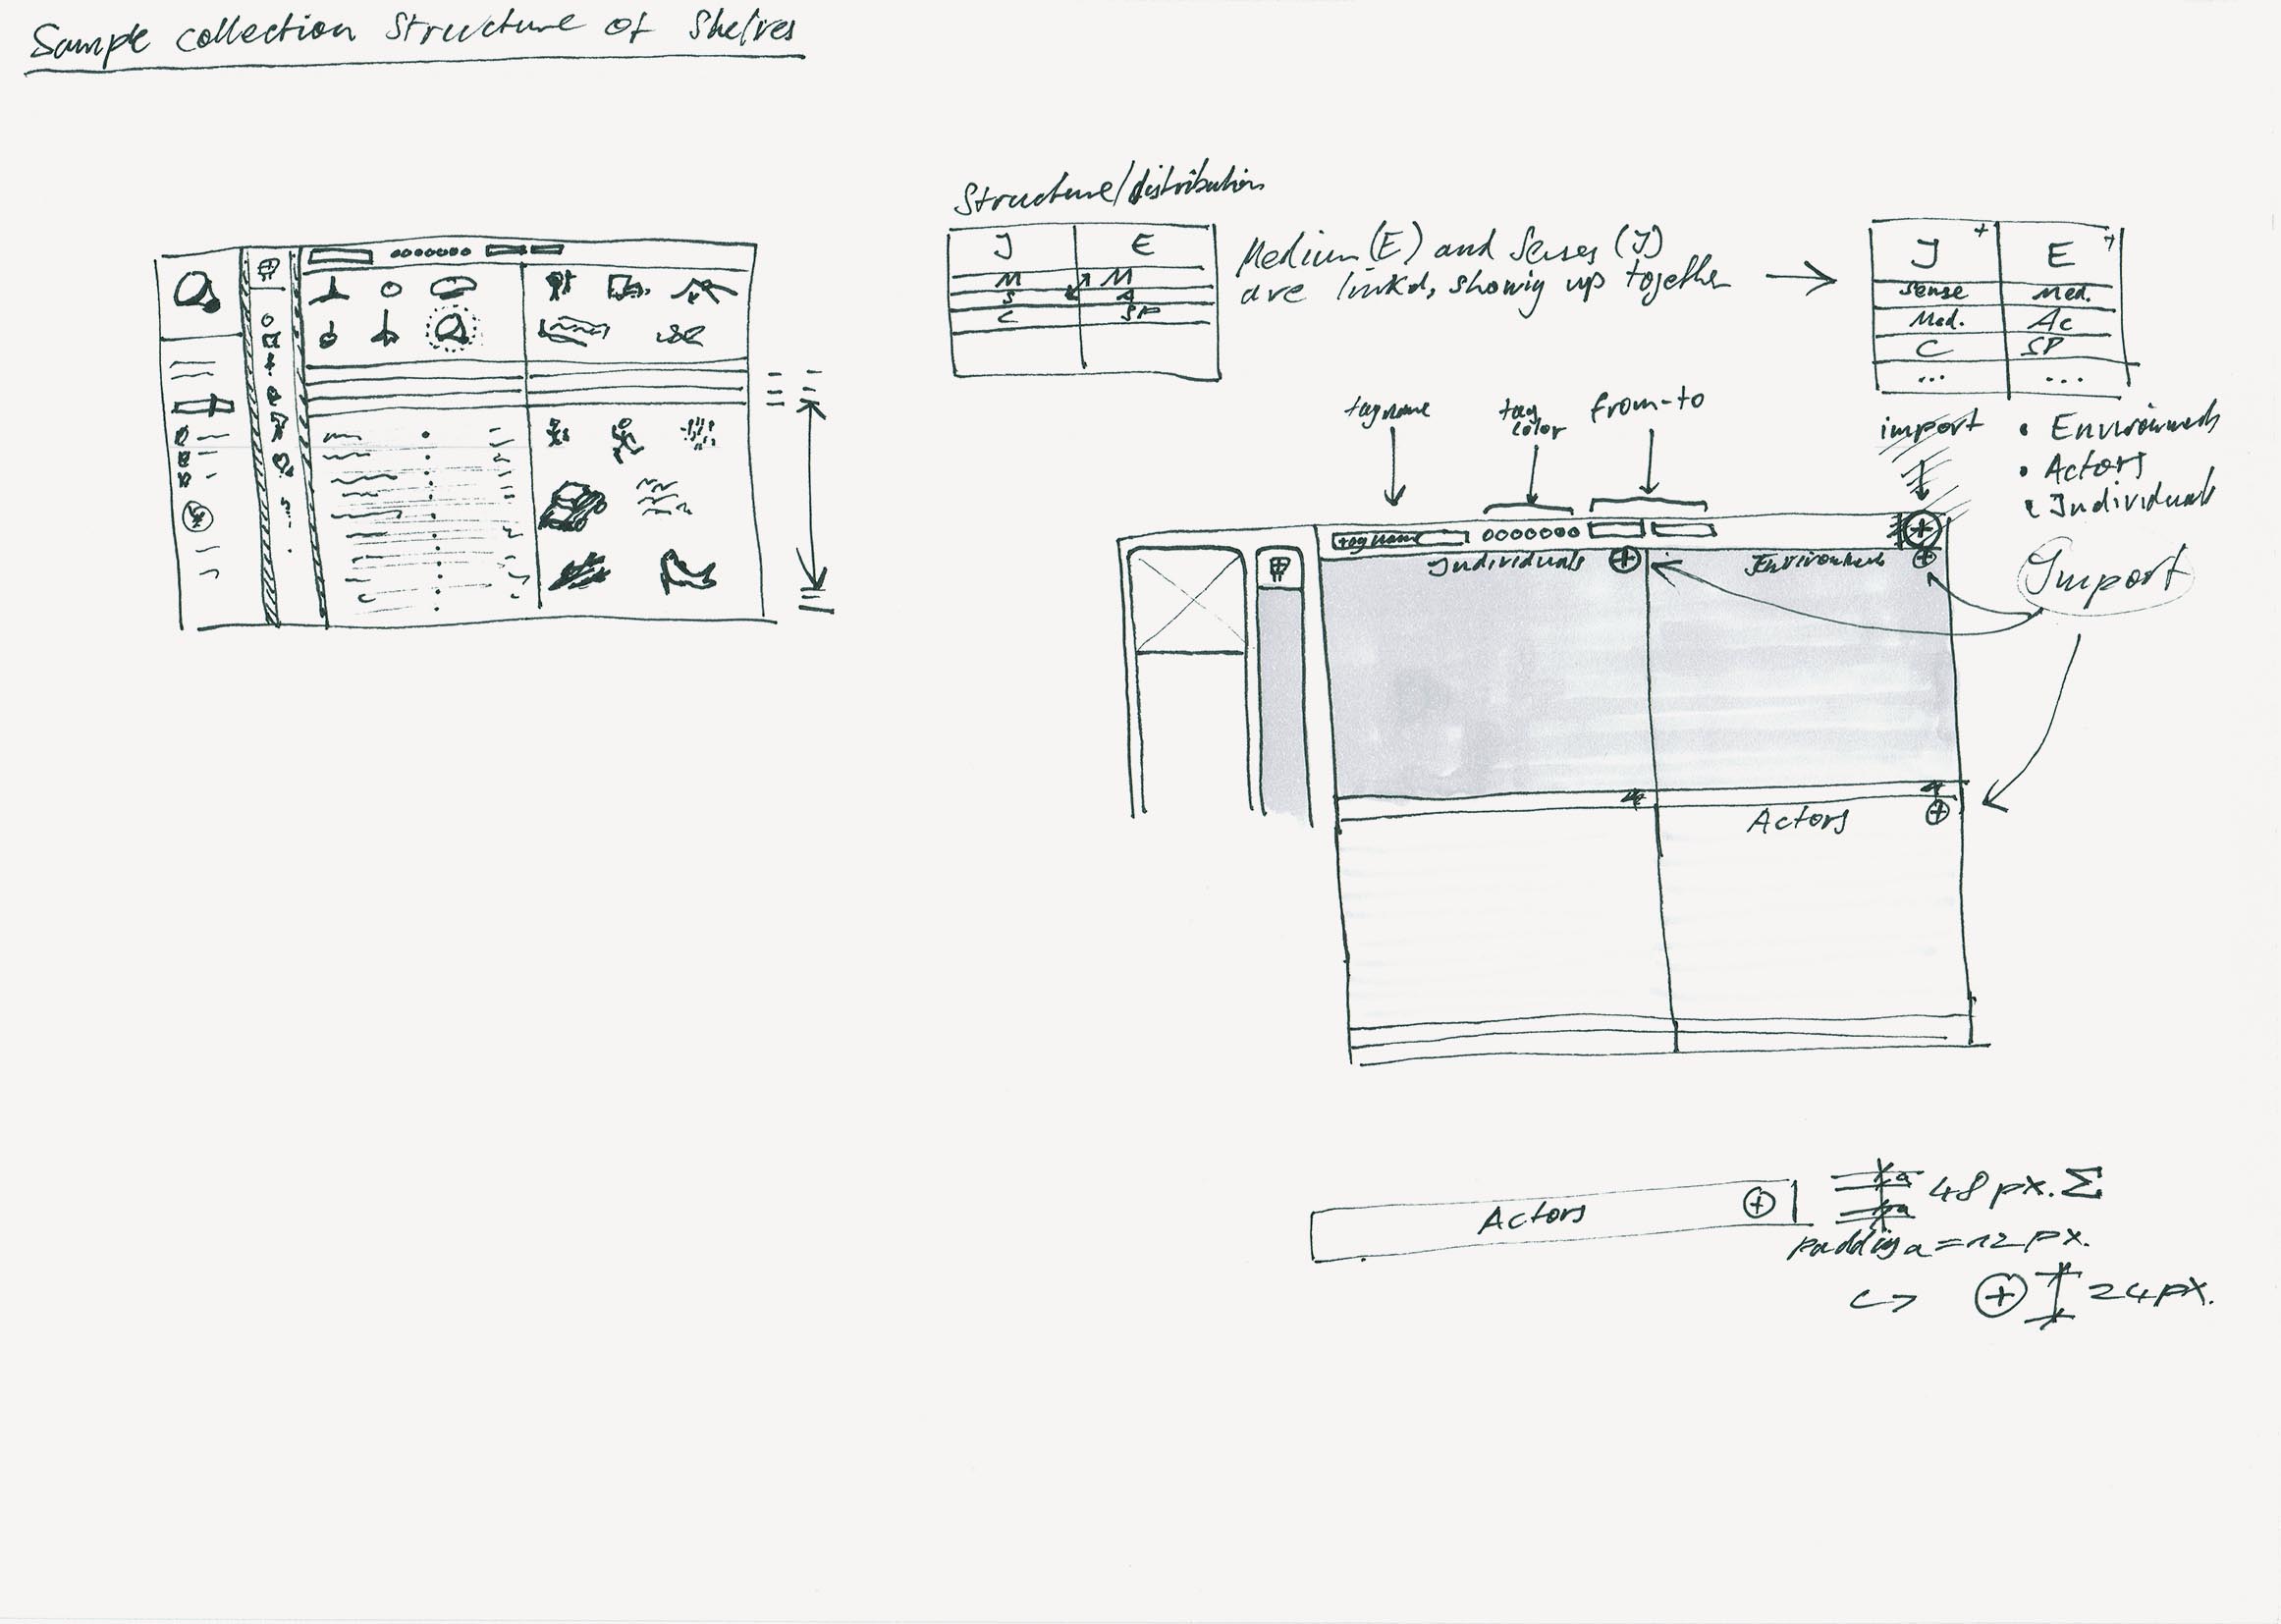 Sample collection structure of shelves
Structure/distribution
J E
M M
S A
C SP
Medium (E) and Senses (J)
are linkd, showig up together
J + E +
Sense Med.
Med. Ac
C SP
... ...
tagname
tag
color
from-to
import
• Environments
• Actors
• Individuals
Import
tagname
Individuals
Environments
Actors
Actors
a
a
48 px. Σ
padding a = 12 px.
24 px.